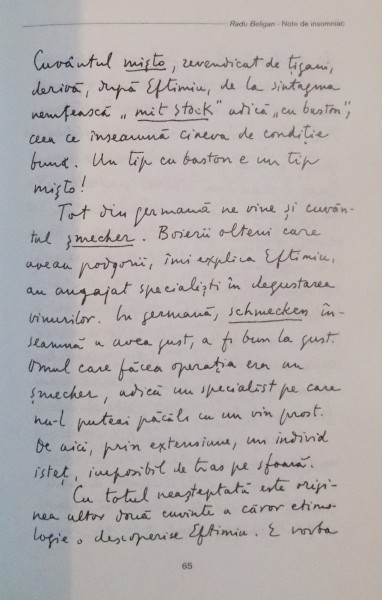 Radu Beligan - Note de insomniac
Cuvântul mişto, revendicat de ţigani,
derivă, după Eftimiu, de la sintagma
nemţească „mit Stock" adică „cu baston",
ceea ce înseamnă cineva de condiţie
bună. Un tip cu baston e un tip
mişto!
Tot din germană ne vine şi cuvân-
tul şmecher. Boierii olteni care
aveau podgorii, îmi explica Eftimiu,
au angajat specialişti în degustarea
vinurilor. În germană, schmecken în-
seamnă a avea gust, a fi bun la gust.
Omul care făcea operaţia era un
şmecher, adică un specialist pe care
nu-l puteai păcăli cu un vin prost.
De aici, prin extensiune, un individ
isteţ, imposibil de tras pe sfoară.
Cu totul neaşteptată este origi-
nea altor două cuvinte a căror etimo-
logie o descoperise Eftimiu. E vorba
65